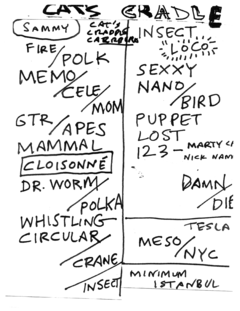 CATS CRADLE
SAMMY
CAT'S
CRADDLE
FIRE/POLK
MEMO/
CELE/
MOM
GTR/APES
MAMMAL
CLOISONNÉ
DR. WORM/
POLKA
WHISTLING
CIRCULAR/
CRANE/
INSECT
INSECT
LOCO
SEXXY
NANO/
BIRD
PUPPET
LOST
123 - MARTY
NICK NAM
DAMN/
DIE
TESLA
MESO/
NYC
MINIMUM
ISTANBUL